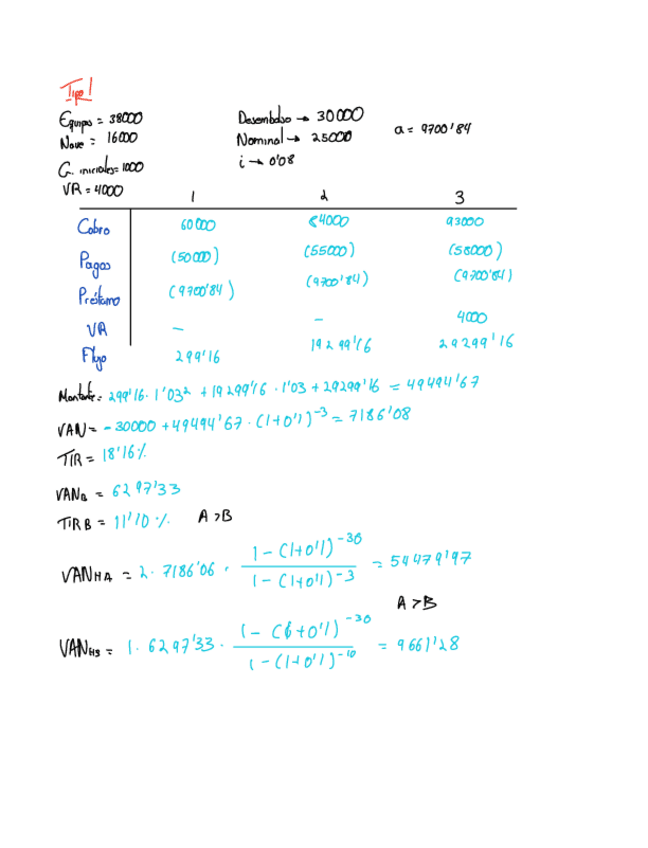 Tipo 1
Equipos = 38000
Desembolso → 30000
a = 9700'84
Nave = 16000
Nominal → 25000
G. iniciales = 1000
i → 0'08
VR = 4000
1 2 3
Cobro 60000 84000 93000
Pagos (50000) (55000) (58000)
Préstamo (9700'84) (9700'84) (9700'84)
VR - - 4000
Flujo 299'16 19299'16 29299'16
Montante = 299'16 · 1'03² + 19299'16 · 1'03 + 29299'16 = 49494'67
VAN = - 30000 + 49494'67 · (1+0'1)⁻³ = 7186'08
TIR = 18'16%
VAN_B = 6297'33
TIR B = 11'10 % A > B
VAN_HA = 2 · 7186'06 · (1 - (1+0'1)⁻³⁰) / (1 - (1+0'1)⁻³) = 54479'97
A > B
VAN_HB = 1 · 6297'33 · (1 - (1+0'1)⁻³⁰) / (1 - (1+0'1)⁻¹⁰) = 9661'28